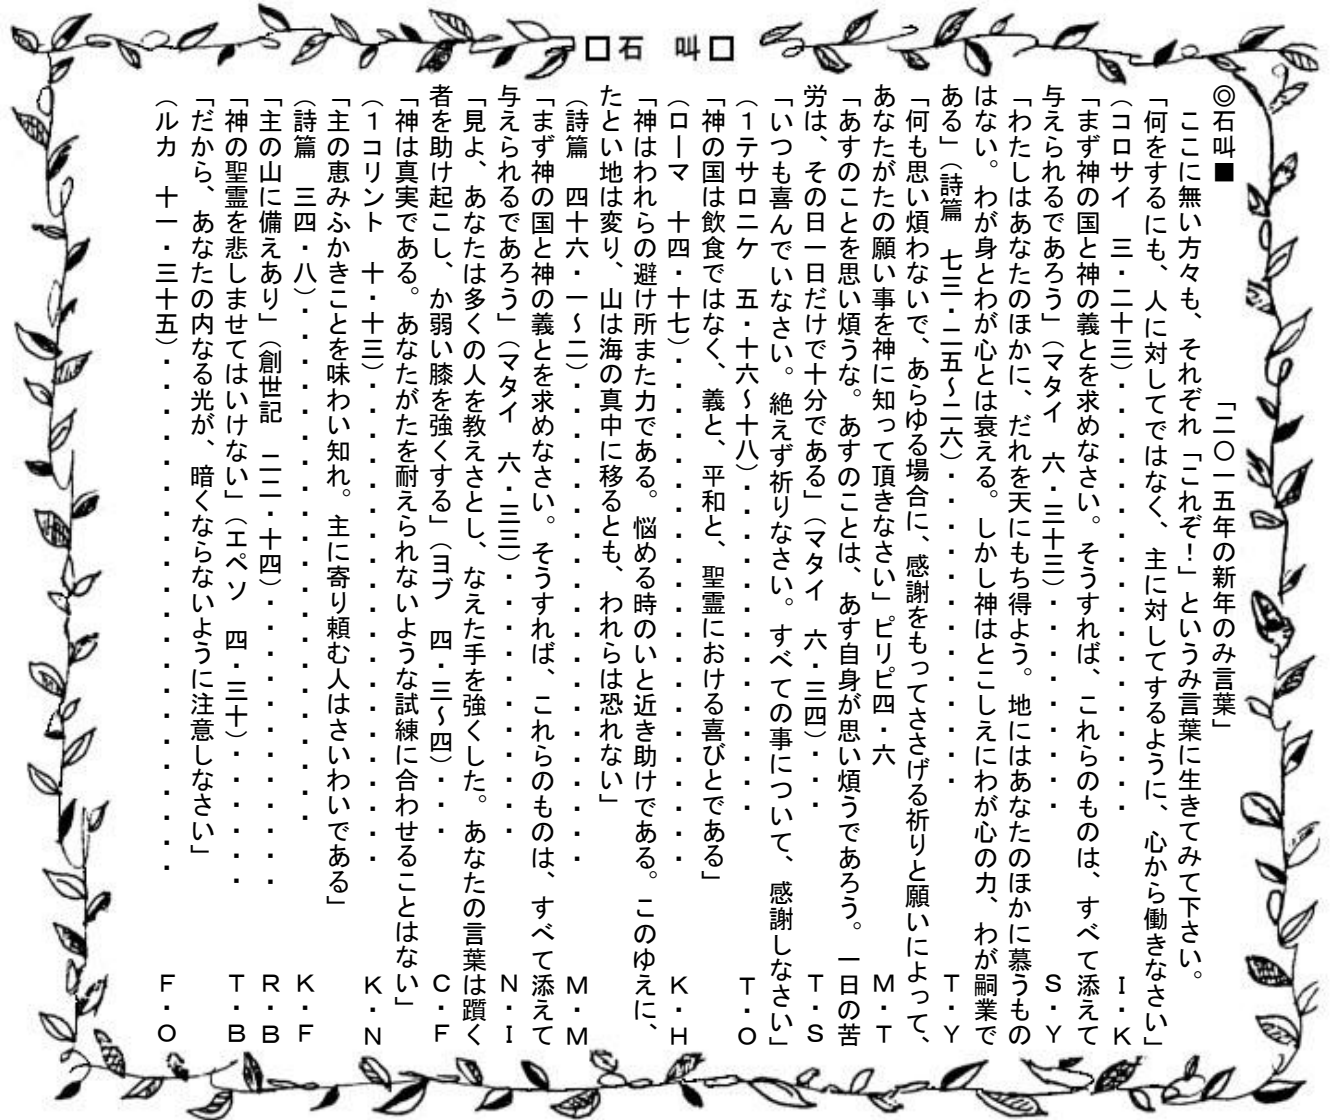 □石　叫□
◎石叫■　　　　　　「二〇一五年の新年のみ言葉」
ここに無い方々も、それぞれ「これぞ！」というみ言葉に生きてみて下さい。
「何をするにも、人に対してではなく、主に対してするように、心から働きなさい」
（コロサイ　三・二十三）・・・・・・・・・・・・・　Ｉ・Ｋ
「まず神の国と神の義とを求めなさい。そうすれば、これらのものは、すべて添えて
与えられるであろう」（マタイ　六・三十三）・・・・・・・　Ｓ・Ｙ
「わたしはあなたのほかに、だれを天にもち得よう。地にはあなたのほかに慕うもの
はない。わが身とわが心とは衰える。しかし神はとこしえにわが心の力、わが嗣業で
ある」（詩篇　七三・二五～二六）・・・・・・・・・・　Ｔ・Ｙ
「何も思い煩わないで、あらゆる場合に、感謝をもってささげる祈りと願いによって、
あなたがたの願い事を神に知って頂きなさい」ピリピ四・六　Ｍ・Ｔ
「あすのことを思い煩うな。あすのことは、あす自身が思い煩うであろう。一日の苦
労は、その日一日だけで十分である」（マタイ　六・三四）・・・　Ｔ・Ｓ
「いつも喜んでいなさい。絶えず祈りなさい。すべての事について、感謝しなさい」
（１テサロニケ　五・十六～十八）・・・・・・・・・・　Ｔ・Ｏ
「神の国は飲食ではなく、義と、平和と、聖霊における喜びとである」
（ローマ　十四・十七）・・・・・・・・・・・・・・・　Ｋ・Ｈ
「神はわれらの避け所また力である。悩める時のいと近き助けである。このゆえに、
たとい地は変り、山は海の真中に移るとも、われらは恐れない」
（詩篇　四十六・一～二）・・・・・・・・・・・・・・　Ｍ・Ｍ
「まず神の国と神の義とを求めなさい。そうすれば、これらのものは、すべて添えて
与えられるであろう」（マタイ　六・三三）・・・・・・・・　Ｎ・Ｉ
「見よ、あなたは多くの人を教えさとし、なえた手を強くした。あなたの言葉は躓く
者を助け起こし、か弱い膝を強くする」（ヨブ　四・三～四）・・・　Ｃ・Ｆ
「神は真実である。あなたがたを耐えられないような試練に合わせることはない」
（１コリント　十・十三）・・・・・・・・・・・・・・　Ｋ・Ｎ
「主の恵みふかきことを味わい知れ。主に寄り頼む人はさいわいである」
（詩篇　三四・八）・・・・・・・・・・・・・・・・　Ｋ・Ｆ
「主の山に備えあり」（創世記　二二・十四）・・・・・・・・　Ｒ・Ｂ
「神の聖霊を悲しませてはいけない」（エペソ　四・三十）・・・・　Ｔ・Ｂ
「だから、あなたの内なる光が、暗くならないように注意しなさい」
（ルカ　十一・三十五）・・・・・・・・・・・・・・・　Ｆ・Ｏ